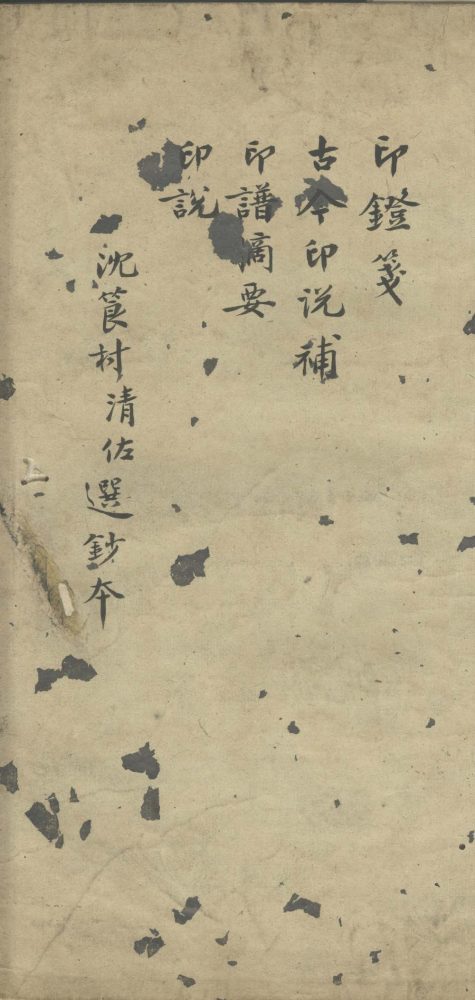 印鐙箋
古今印说補
印譜摘要
印說
沈筤村清佐選鈔本